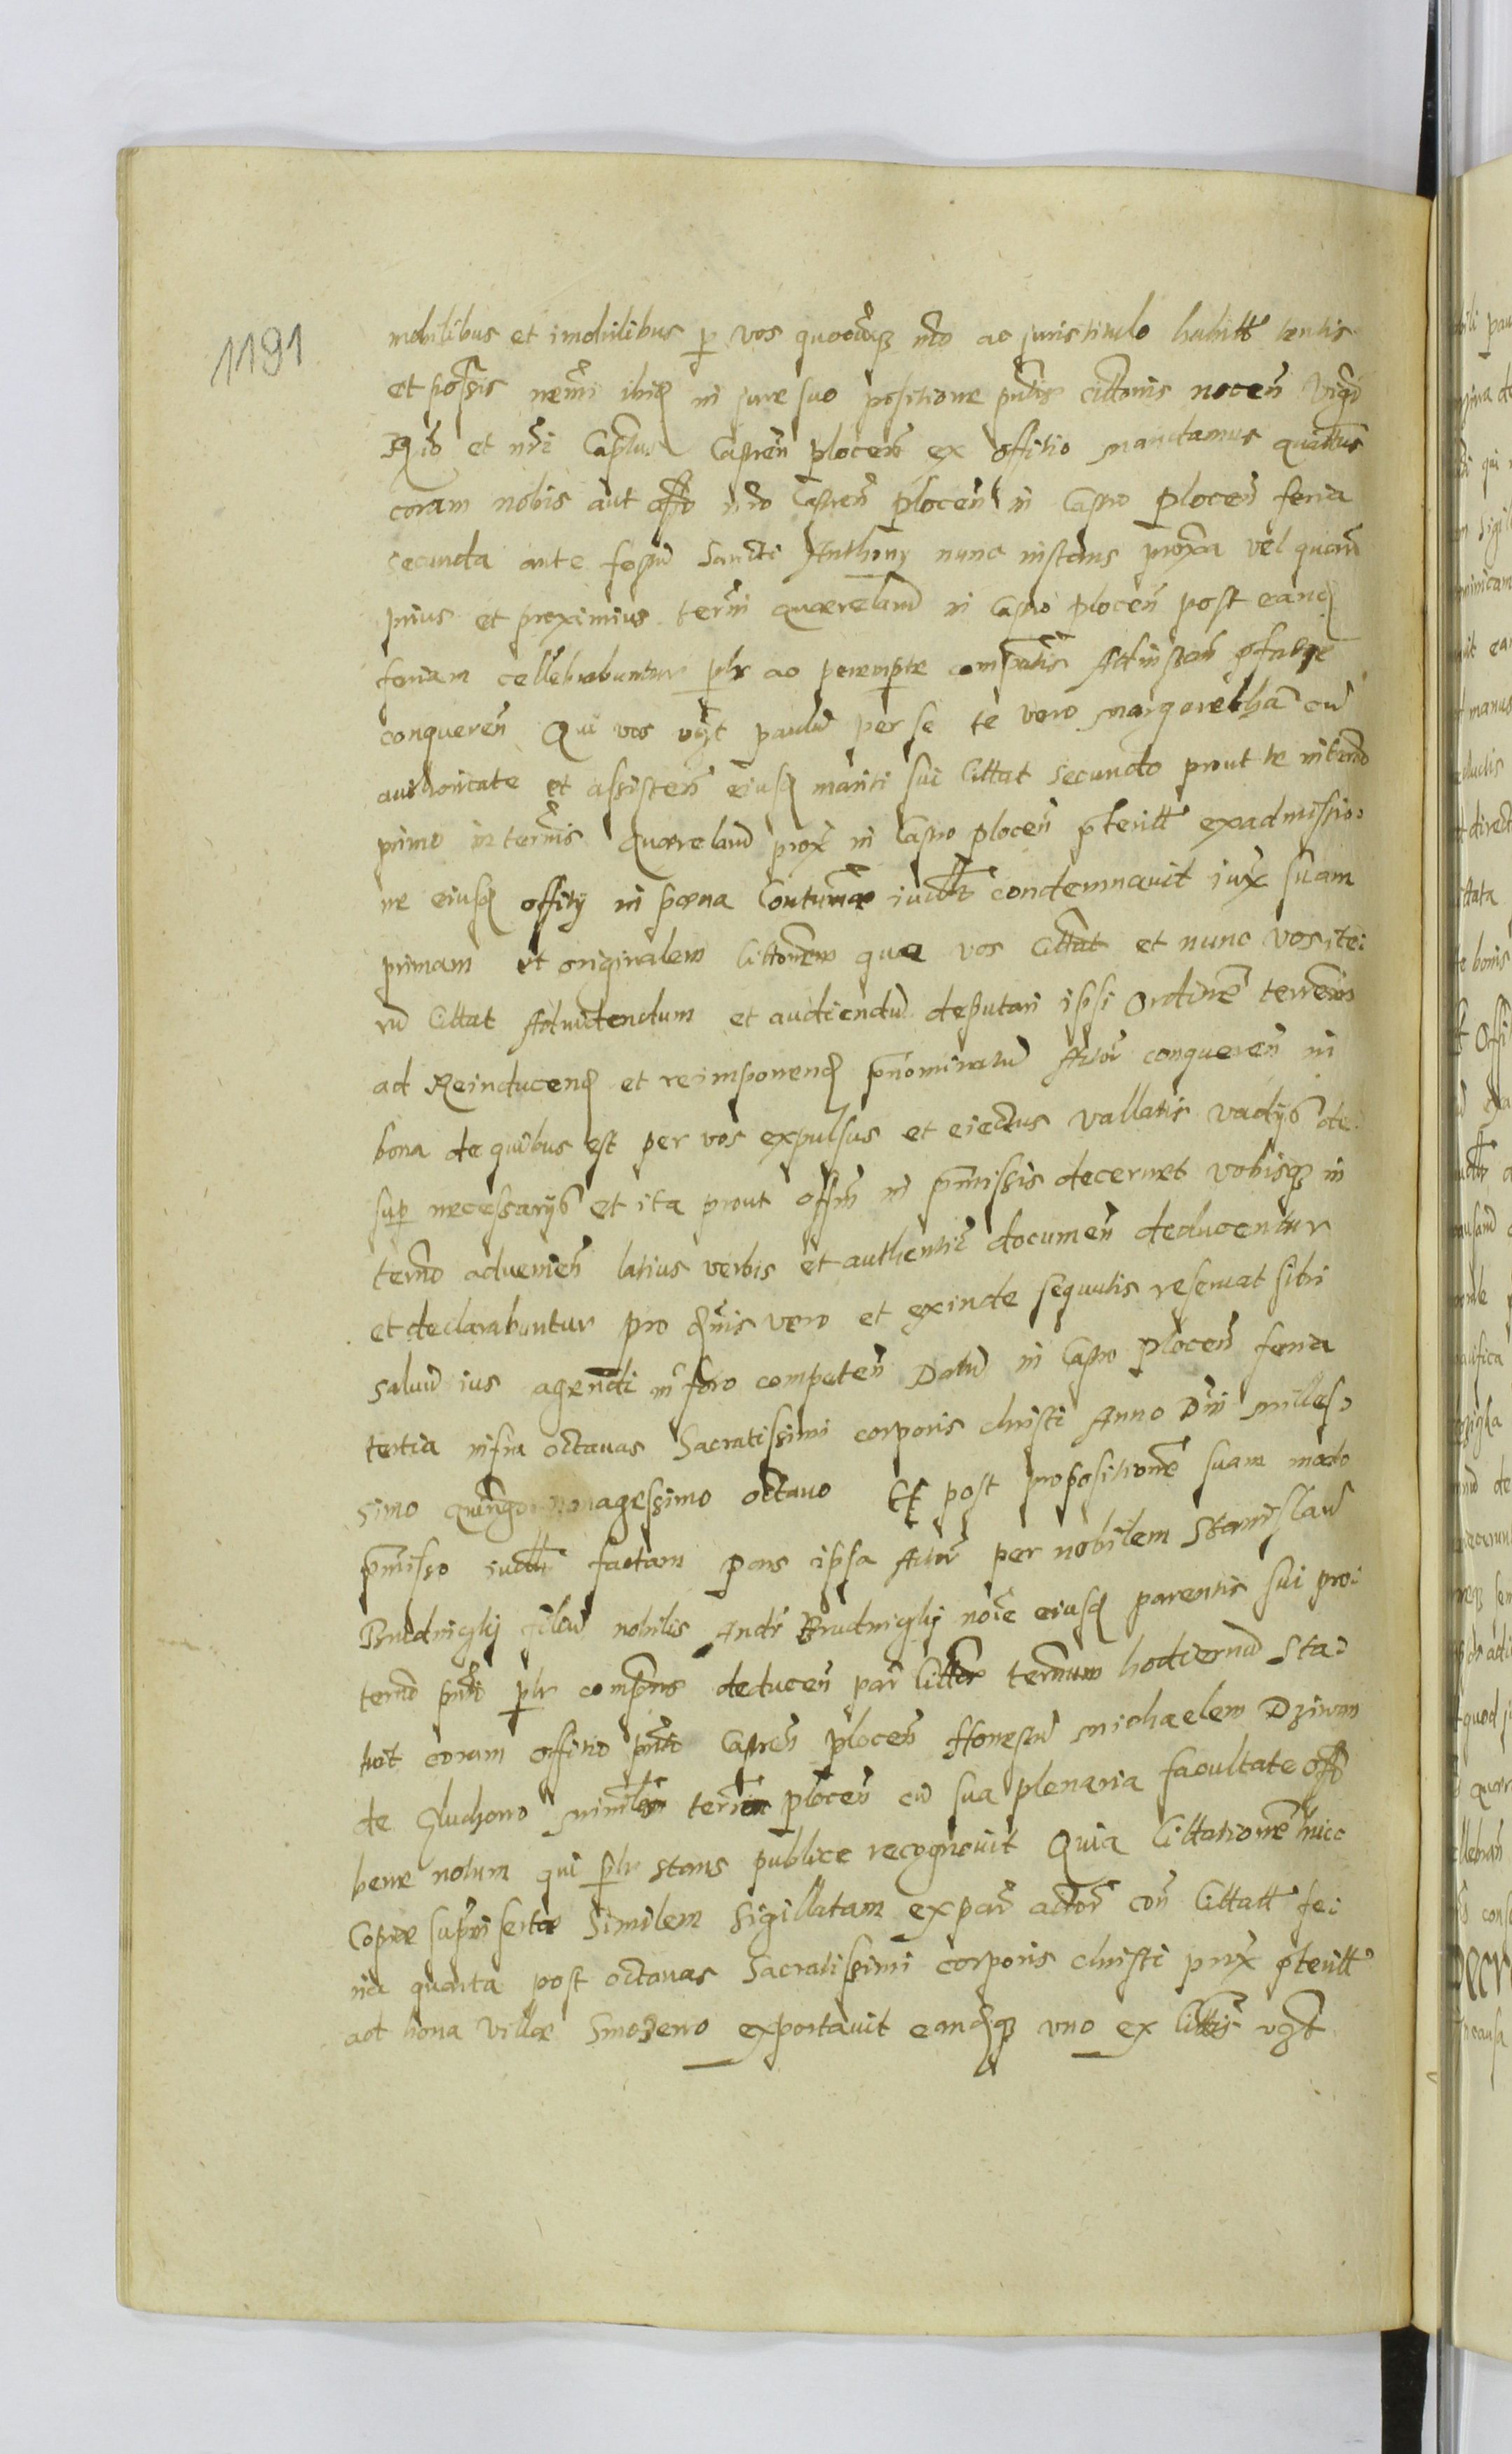 1191
mobilibus et imobilibus p vos quocūqȝ mō ac juristitulo habitt tentis
et possis nemini ibid in jure suo positione pntis cittonis nocen̄ vigō
Rīo et nri Captur Castren̄ plocen̄ ex offitio mandamus quattus
coram nobis aut offo nro Castren̄ plocen̄ in Castro plocen̄ feria
secunda ante festū Sancti Anthony nunc instans proxa vel quan̄
prius et proximius termi quaereland in Castro plocen̄ post eand
feriam cellebrabuntur plr ac peremptre compatis Ad instan̄
conqueren̄ Qui vos vzt paulū per se te vero margaretham cū
authoritate et assisten̄ eiusd mariti sui Cittat secundo prout te in termo
primo in termis quaereland prox in Castro plocen̄ pteritt ex admissio
ne eiusd offity in poena Contumae iudtt condemnauit iux suam
primam et originalem Cittonem qua vos Cittat et nunc vos ite
rū Cittat Ad videndum et audiendū deputari ipsi Ordinē terrem
ad Reinducend et reimponend pnominatū Actor conqueren̄ in
bona de quibus est per vos expulsus et eiectus vallatis vadijs de
sup necessarys et ita prout offm in pmissis decernet vobisqȝ in
termo aduenien̄ latius verbis et authentic documen̄ deducentur
et declarabuntur pro damnis vero et exinde sequutis reseruat sibi
saluū ius agendi in foro competen̄ Datū in Castro plocen̄ feria
tertia infra octauas Sacratissimi corporis christi Anno Dni milles
simo quingen nonagessimo octauo Et post propositionē suam modo
pmisso iudtt factam Pars ipsa Actor per nobilem Stanislaū
Brudnigkj filiū nobilis Andr Brudnigkj noīe eiusd parentis sui pro
termo pnti plr compns deducen̄ par Cittor terminum hodiernū sta
tuit coram offitio pnti Castren̄ plocen̄ Honestū michaelem Dziwan
de Gluchowo ministlem terrm plocen̄ cū sua plenaria facultate offo
bene notum qui plr stans publice recognouit Quia Cittationē huic
Copiae suprinsertae similem sigillatam ex par actor con̄ Cittatt fe
ria quarta post octauas Sacratissimi corporis christi prox pteritt
ad bona villae Smozewo exportauit eandqȝ vno ex Cittis vzt